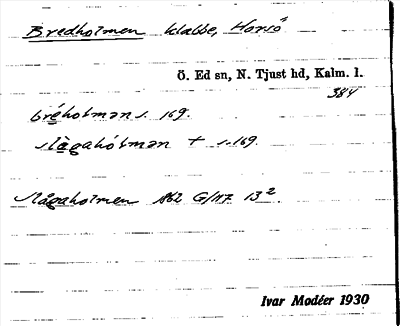 Bredholmen klabbe, Horsö
Ö. Ed sn, N. Tjust hd, Kalm. l.
384
bréholmən s. 169.
slågahólmən + s. 169.
Slågaholmen Abl G/117 13²
Ivar Modéer 1930